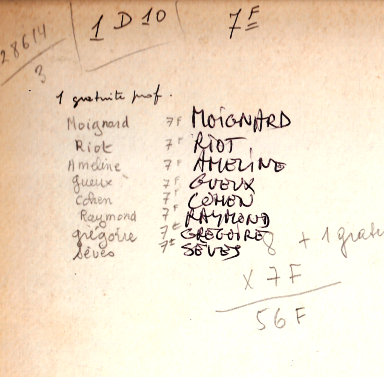 28614
3
1 D 10
7F
1 gratuite prof.
Moignard 7F MOIGNARD
Riot 7F RIOT
Ameline 7F AMELINE
Gueux 7F GUEUX
Cohen 7F COHEN
Raymond 7F RAYMOND
grégoire 7F GREGOIRE
Sèves 7F SÈVES
8 + 1 gratu
x 7F
56F